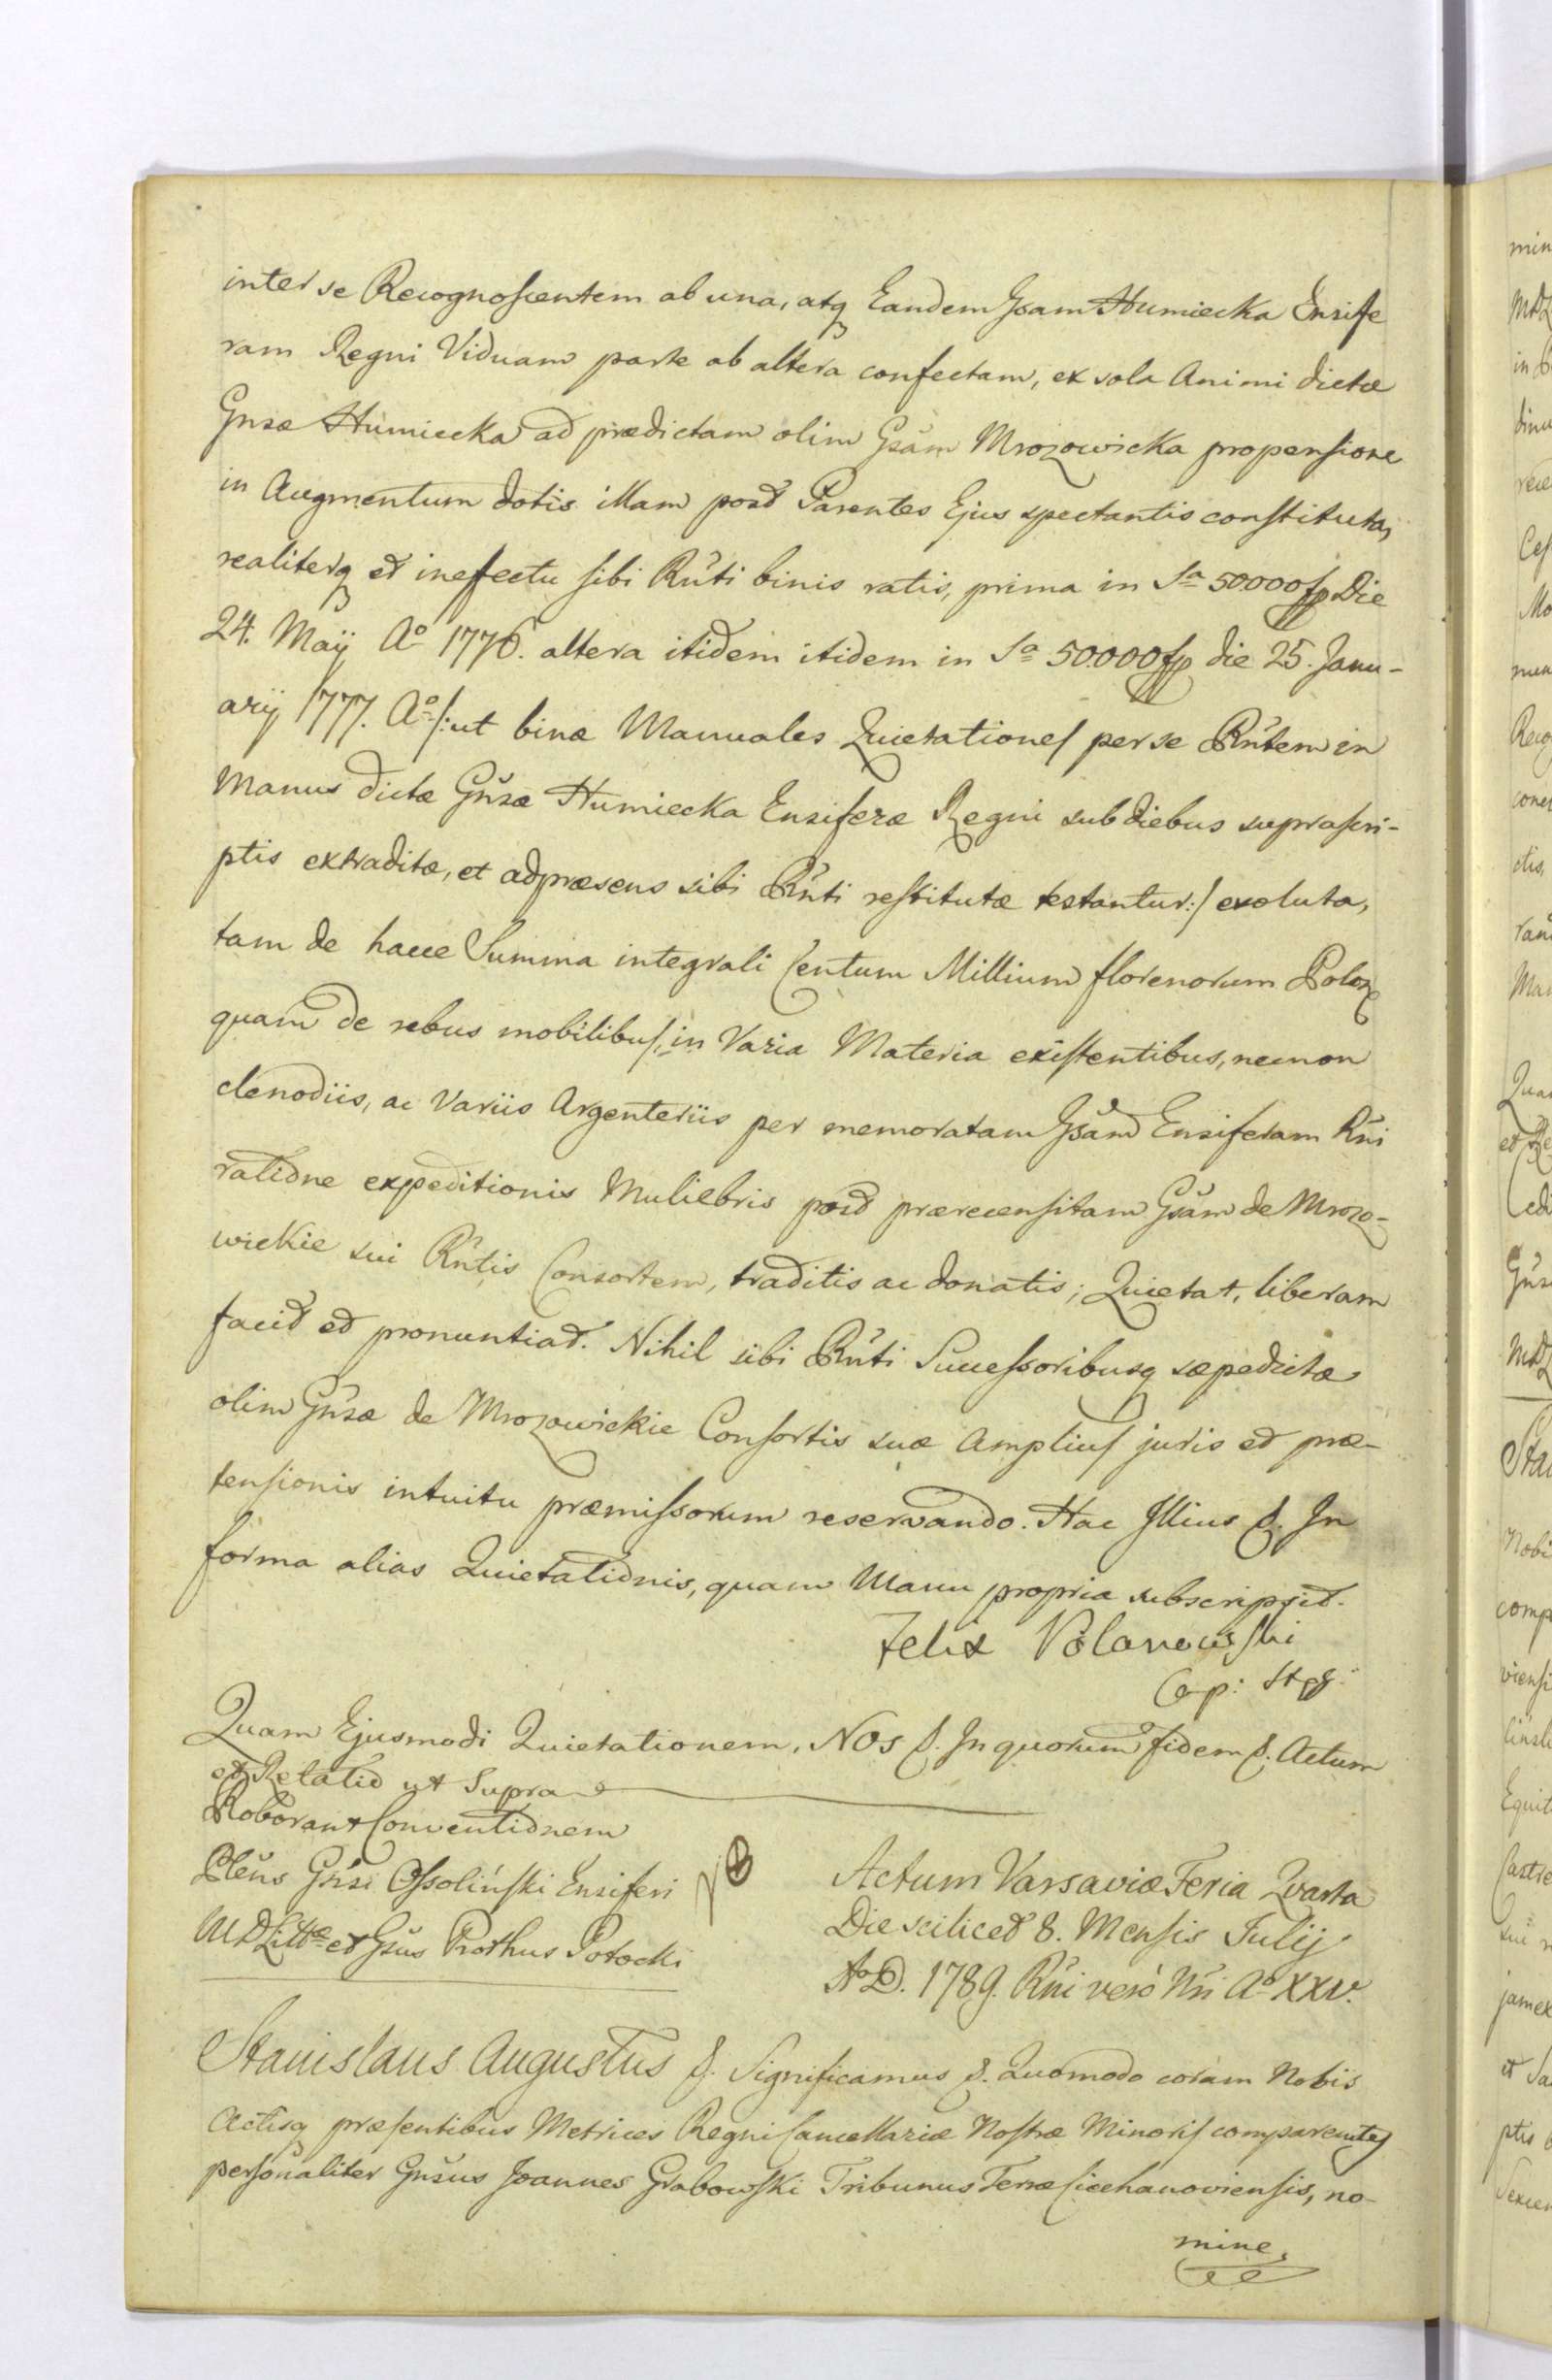 inter se Recognoscentem ab una, atq Eandem Gsam Humiecka Ensife
ram Regni Viduam parte ab altera confectam, ex sola Animi dictæ
Gnsæ Humiecka ad prædictam olim Gsam Mrozowicka propensione
in Augmentum dotis illam post Parentes Ejus spectantis constituta,
realiterq et in effectu sibi Rnti binis ratis, prima in Sa 50.000 fp Die
24. Maij Ao 1776. altera itidem itidem in Sa 50000 fp die 25. Janu-
arij 1777. Ao /:ut binæ Manuales Quietationes per se Rntem in
Manus dictæ Gnsæ Humiecka Ensiferæ Regni sub diebus suprascri-
ptis extraditæ, et ad præsens sibi Rnti restitutæ testantur:/ exoluta,
tam de hacce Summa integrali Centum Millium florenorum Polon
quam de rebus mobilibus, in Varia Materia existentibus, necnon
clenodiis, ac Variis Argenteriis per memoratam Gsam Ensiferam Rni
ratione expeditionis Muliebris post prærecensitam Gsam de Mrozo-
wickie sui Rntis Consortem, traditis ac donatis; Quietat, liberam
facit et pronuntiat. Nihil sibi Rnti Successoribusq sæpedictæ
olim Gnsæ de Mrozowickie Consortis suæ Amplius juris et præ-
tensionis intuitu præmissorum reservando. Hac Illius &. In
forma alias Quietationis, quam Manu propria subscripsit.
Felix Polanowski
Cap: Stgg:
Quam Ejusmodi Quietationem, Nos &. In quorum fidem &. Actum
et Relatio ut Supra
Roborant Conventionem
Plens Gnsi Ossoliński Ensiferi
MDLittæ et Gsus Prothus Potocki
NB
Actum Varsaviæ Feria Qvarta
Die scilicet 8. Mensis Julij
AD. 1789. Rni vero Nri Ao XXV.
Stanislaus Augustus &. Significamus &. Quomodo coram Nobis
Actisq præsentibus Metrices Regni Cancellariæ Nostræ Minoris comparentes
personaliter Gnsus Joannes Grabowski Tribunus Terræ Ciechanoviensis, no-
mine,